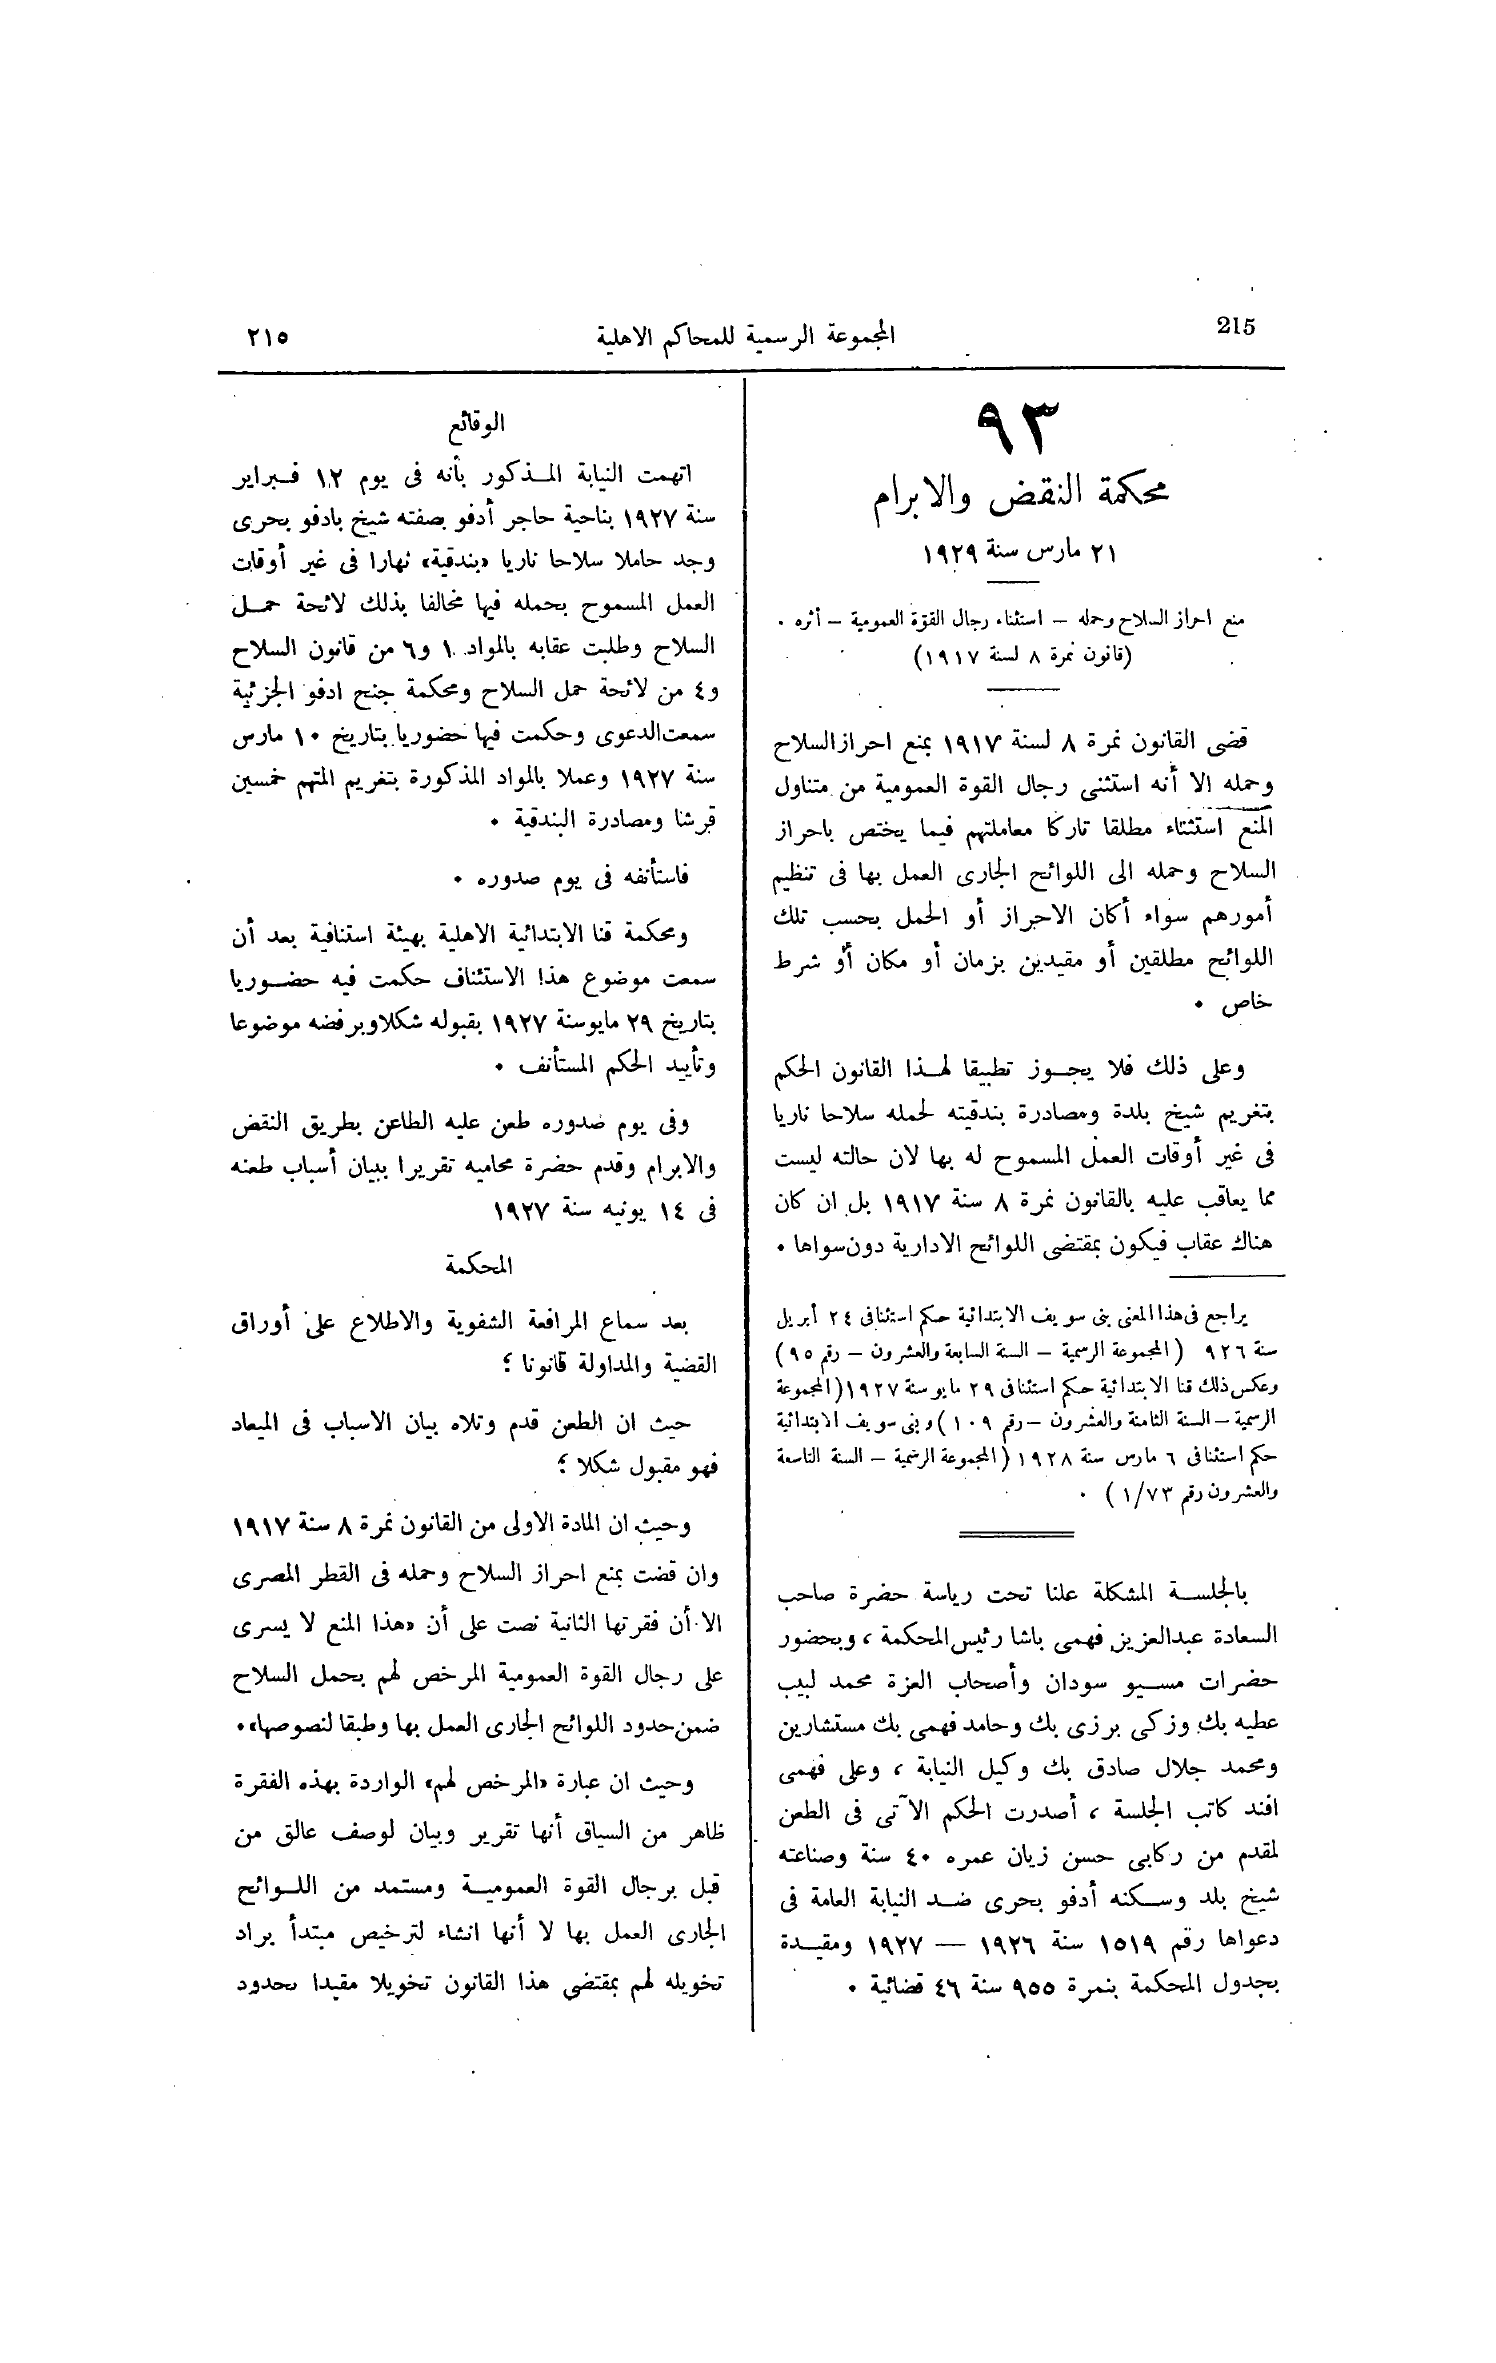 215
المجموعة الرسمية للمحاكم الاهلية
٢١٥
٩٣
محكمة النقض والابرام
٢١ مارس سنة ١٩٢٩
منع احراز السلاح وحمله — استثناء رجال القوة العمومية — أثره .
(قانون نمرة ٨ لسنة ١٩١٧)
قضى القانون نمرة ٨ لسنة ١٩١٧ بمنع احراز السلاح
وحمله الا أنه استثنى رجال القوة العمومية من متناول
المنع استثناء مطلقا تاركا معاملتهم فيما يختص باحراز
السلاح وحمله الى اللوائح الجارى العمل بها فى تنظيم
أمورهم سواء أكان الاحراز أو الحمل بحسب تلك
اللوائح مطلقين أو مقيدين بزمان أو مكان أو شرط
خاص .
وعلى ذلك فلا يجوز تطبيقا لهذا القانون الحكم
بتغريم شيخ بلدة ومصادرة بندقيته لحمله سلاحا ناريا
فى غير أوقات العمل المسموح له بها لان حالته ليست
مما يعاقب عليه بالقانون نمرة ٨ سنة ١٩١٧ بل ان كان
هناك عقاب فيكون بمقتضى اللوائح الادارية دون سواها .
يراجع فى هذا المعنى بنى سويف الابتدائية حكم استئنافى ٢٤ أبريل
سنة ٩٢٦ (المجموعة الرسمية — السنة السابعة والعشرون — رقم ٩٥)
وعكس ذلك قنا الابتدائية حكم استئنافى ٢٩ مايو سنة ١٩٢٧ (المجموعة
الرسمية — السنة الثامنة والعشرون — رقم ١٠٩) وبنى سويف الابتدائية
حكم استئنافى ٦ مارس سنة ١٩٢٨ (المجموعة الرسمية — السنة التاسعة
والعشرون رقم ١/٧٣) .
بالجلسة المشكلة علنا تحت رياسة حضرة صاحب
السعادة عبدالعزيز فهمى باشا رئيس المحكمة ، وبحضور
حضرات مسيو سودان وأصحاب العزة محمد لبيب
عطيه بك وزكى برزى بك وحامد فهمى بك مستشارين
ومحمد جلال صادق بك وكيل النيابة ، وعلى فهمى
افند كاتب الجلسة ، أصدرت الحكم الآتى فى الطعن
لمقدم من ركابى حسن زيان عمره ٤٠ سنة وصناعته
شيخ بلد وسكنه أدفو بحرى ضد النيابة العامة فى
دعواها رقم ١٥١٩ سنة ١٩٢٦ — ١٩٢٧ ومقيدة
بجدول المحكمة بنمرة ٩٥٥ سنة ٤٦ قضائية .
الوقائع
اتهمت النيابة المذكور بأنه فى يوم ١٢ فبراير
سنة ١٩٢٧ بناحية حاجر أدفو بصفته شيخ بادفو بحرى
وجد حاملا سلاحا ناريا «بندقية» نهارا فى غير أوقات
العمل المسموح بحمله فيها مخالفا بذلك لائحة حمل
السلاح وطلبت عقابه بالمواد ١ و٦ من قانون السلاح
و٤ من لائحة حمل السلاح ومحكمة جنح ادفو الجزئية
سمعت الدعوى وحكمت فيها حضوريا بتاريخ ١٠ مارس
سنة ١٩٢٧ وعملا بالمواد المذكورة بتغريم المتهم خمسين
قرشا ومصادرة البندقية .
فاستأنفه فى يوم صدوره .
ومحكمة قنا الابتدائية الاهلية بهيئة استنافية بعد أن
سمعت موضوع هذا الاستئناف حكمت فيه حضوريا
بتاريخ ٢٩ مايو سنة ١٩٢٧ بقبوله شكلا وبرفضه موضوعا
وتأييد الحكم المستأنف .
وفى يوم صدوره طعن عليه الطاعن بطريق النقض
والابرام وقدم حضرة محاميه تقريرا ببيان أسباب طعنه
فى ١٤ يونيه سنة ١٩٢٧
المحكمة
بعد سماع المرافعة الشفوية والاطلاع على أوراق
القضية والمداولة قانونا ؛
حيث ان الطعن قدم وتلاه بيان الاسباب فى الميعاد
فهو مقبول شكلا ؛
وحيث ان المادة الاولى من القانون نمرة ٨ سنة ١٩١٧
وان قضت بمنع احراز السلاح وحمله فى القطر المصرى
الا أن فقرتها الثانية نصت على أن «هذا المنع لا يسرى
على رجال القوة العمومية المرخص لهم بحمل السلاح
ضمن حدود اللوائح الجارى العمل بها وطبقا لنصوصها» .
وحيث ان عبارة «المرخص لهم» الواردة بهذه الفقرة
ظاهر من السياق أنها تقرير وبيان لوصف عالق من
قبل برجال القوة العمومية ومستمد من اللوائح
الجارى العمل بها لا أنها انشاء لترخيص مبتدأ يراد
تخويله لهم بمقتضى هذا القانون تخويلا مقيدا بحدود